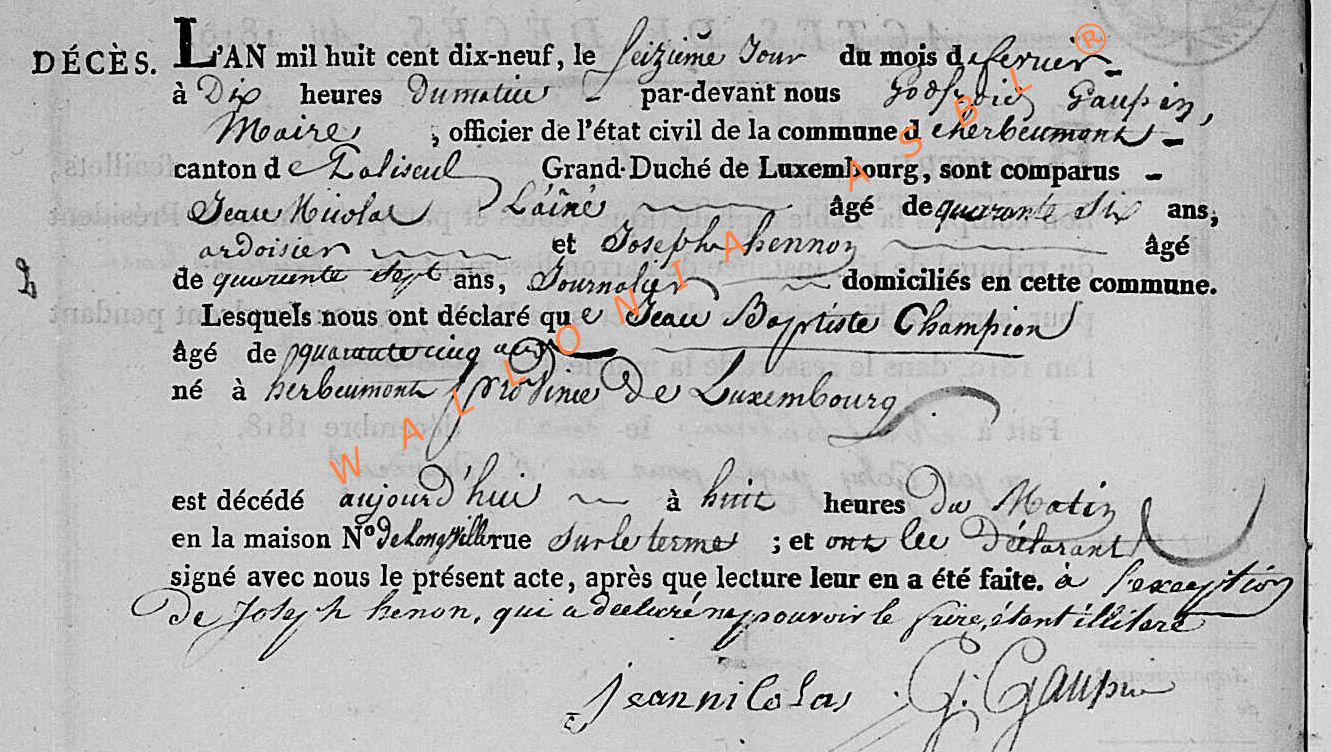 DÉCÈS. L'AN mil huit cent dix-neuf, le Seizieme Jour du mois de fevrier
à Dix heures du matin par-devant nous Godfroid Gaupin,
Maire, officier de l'état civil de la commune d'herbeumont
canton de Paliseul Grand-Duché de Luxembourg, sont comparus
Jean Nicolas L'aîné âgé de quarante Six ans,
ardoisier et Joseph hennon âgé
de quarante Sept ans, Journalier domiciliés en cette commune.
Lesquels nous ont déclaré que Jean Baptiste Champion
âgé de quarante cinq ans
né à herbeumont province de Luxembourg
est décédé aujourd'hui à huit heures du Matin
en la maison Nº rue Sur le terme ; et ont les Déclarant
signé avec nous le présent acte, après que lecture leur en a été faite. à l'exception
de Joseph henon, qui a declaré ne pouvoir le faire, étant illitaré
jean nicolas G. Gaupin
WALLONIA ASBL ®